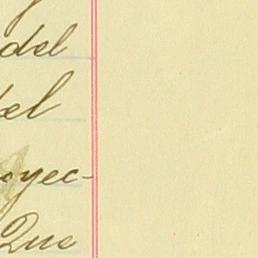 del
el
oyec-
Que